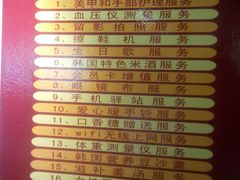 1、美甲和手部护理服务
2、血压仪测量服务
3、留影拍照服务
4、擦鞋机服务
5、生日歌服务
6、韩国特色米酒服务
7、会员卡增值服务
8、眼镜布服务
9、手机驿站服务
10、爱心暖手袋服务
11、口香糖赠送服务
12、wifi无线上网服务
13、体重测量仪服务
14、韩国营养豆沙羹
15、滋补姜汤服务